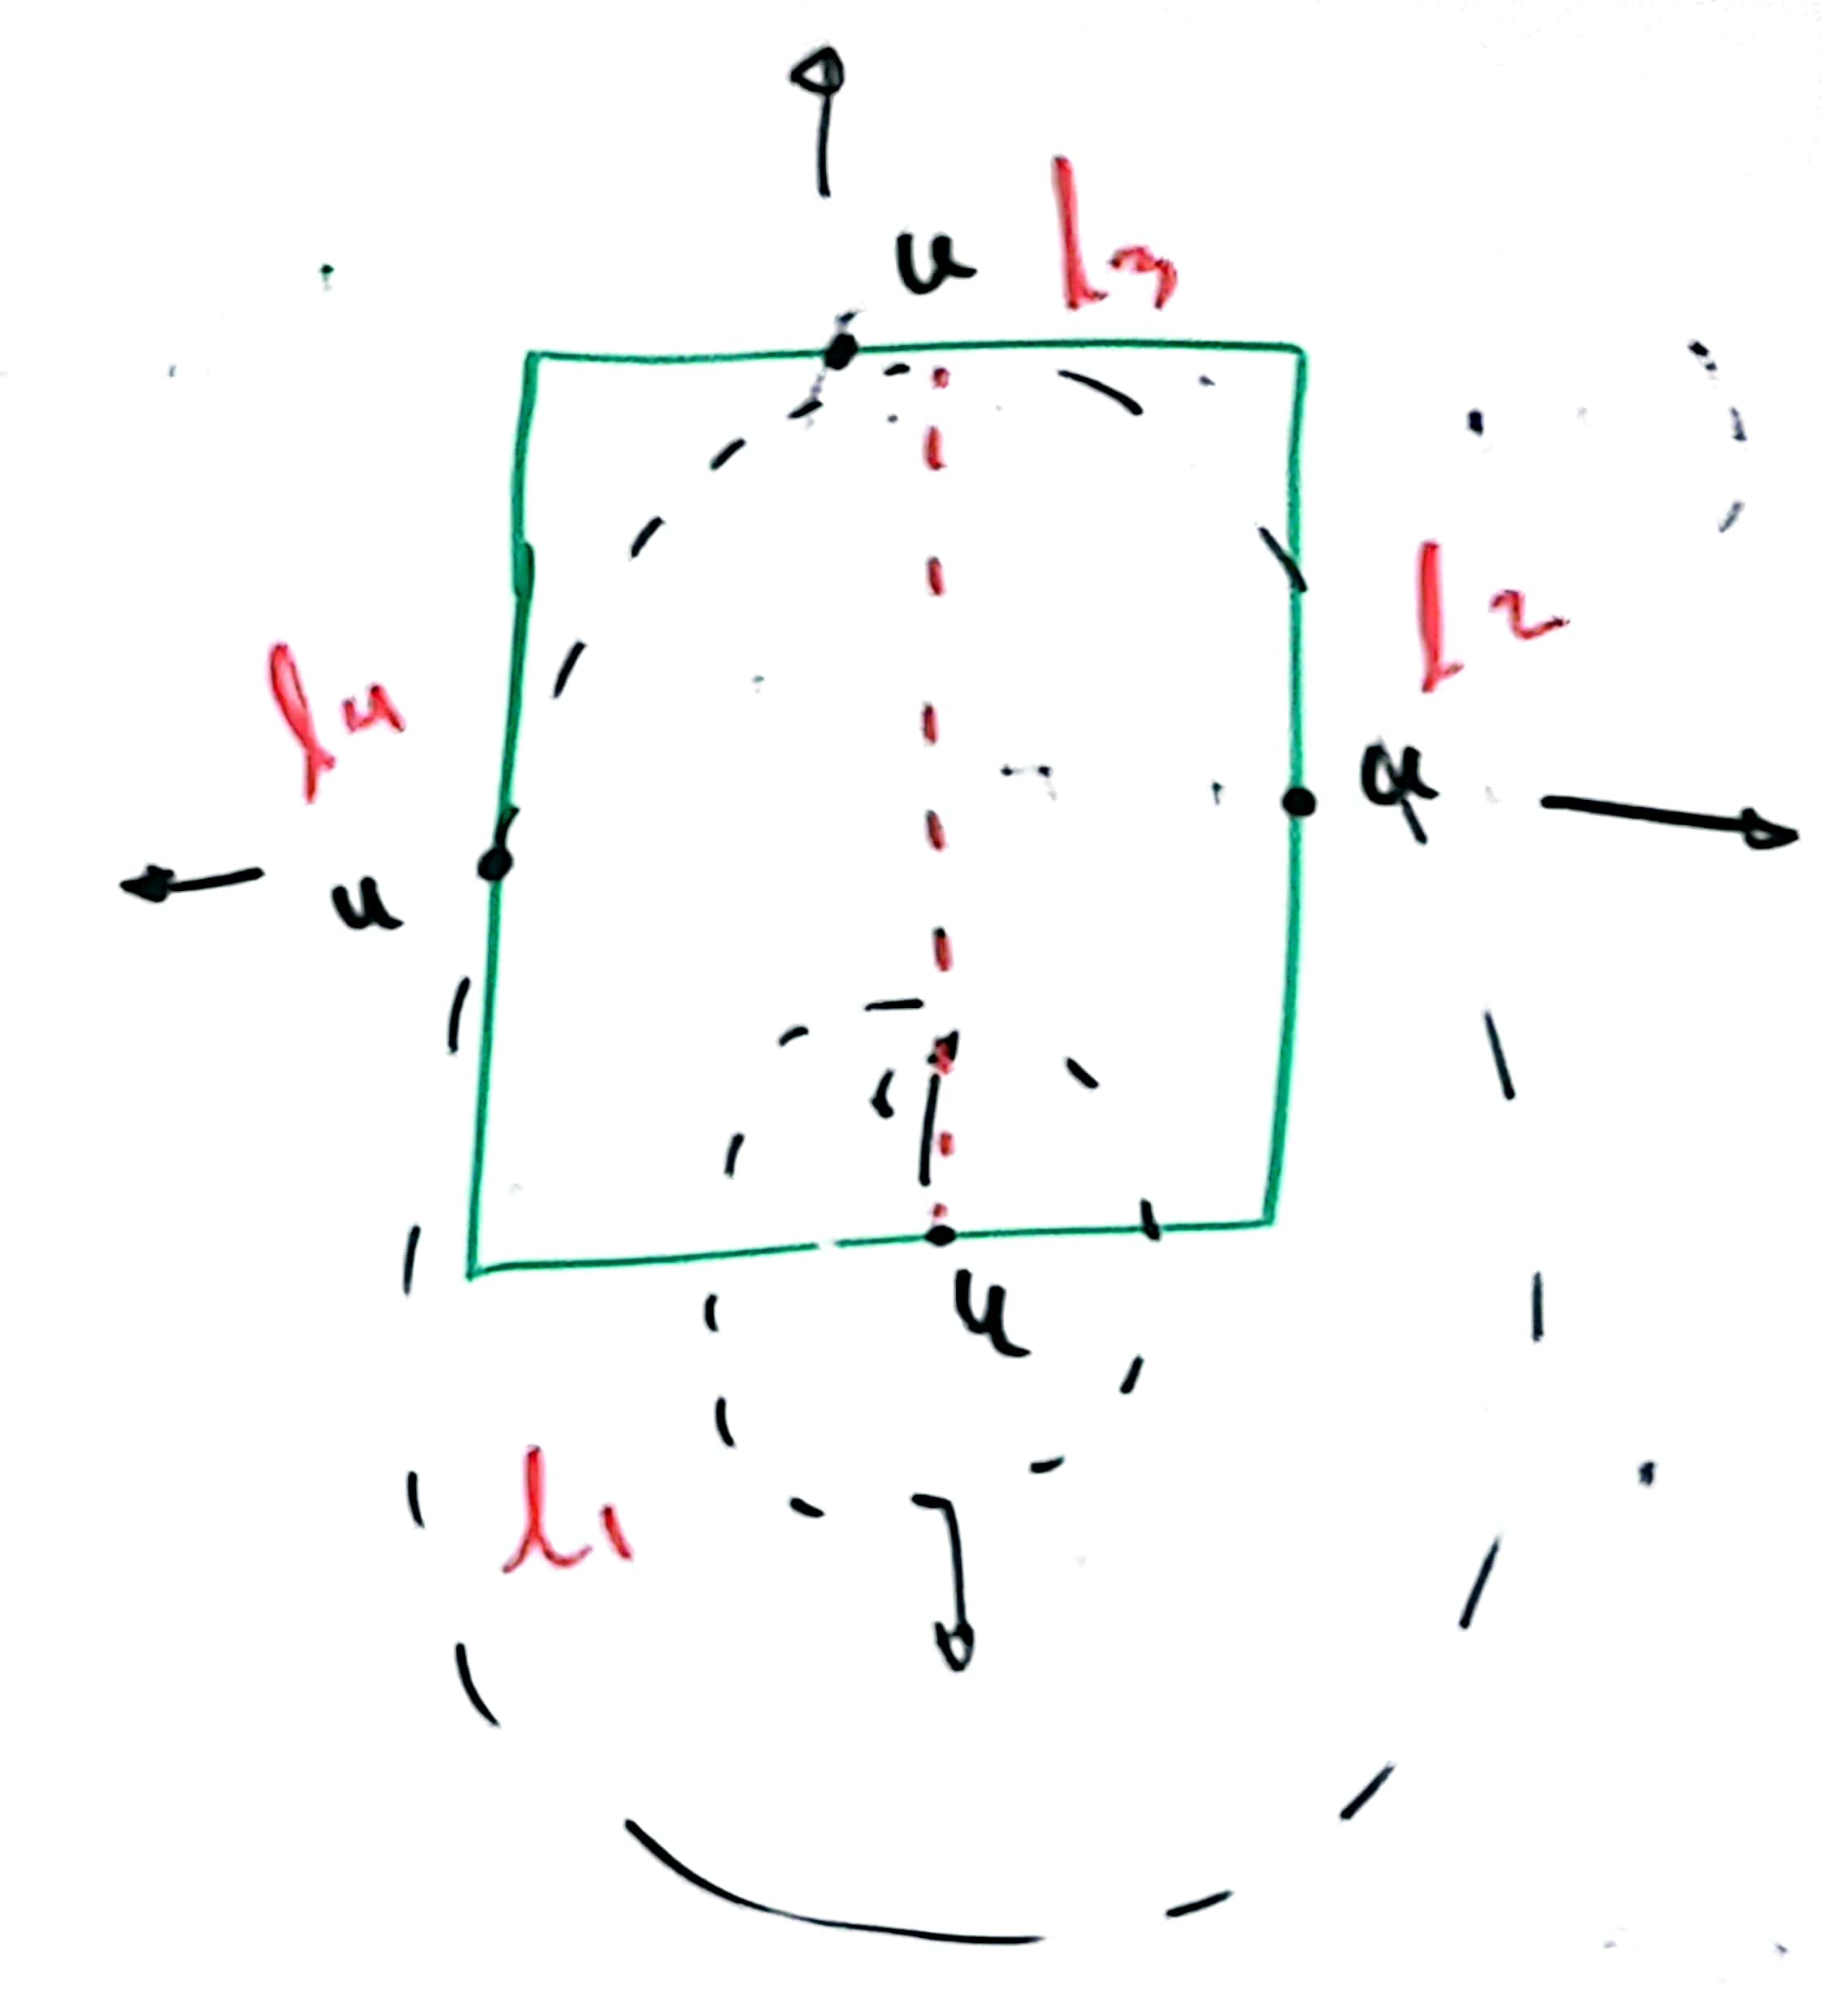 u l3
l2
l4
u
u
u
l1